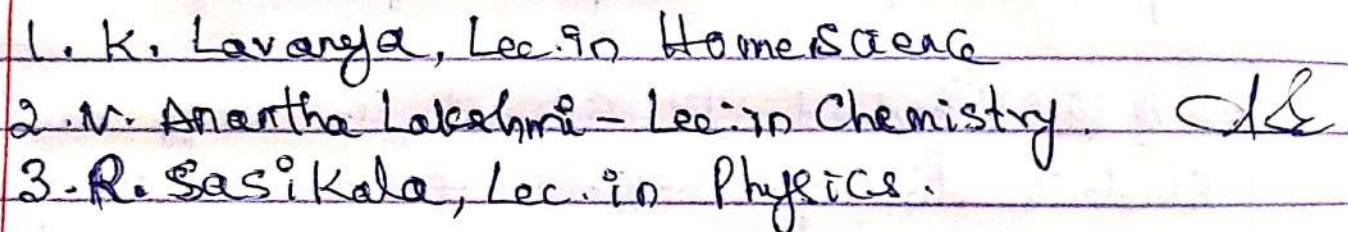 1. K. Lavanya, Lec. in Home Science
2. V. Anantha Lakshmi - Lec. in Chemistry.
3. R. Sasikala, Lec. in Physics.